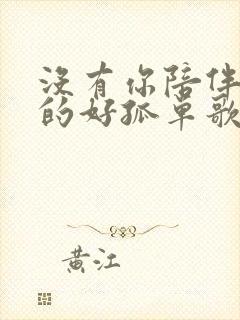 沒有你陪伴
的好孤單歌
黄江